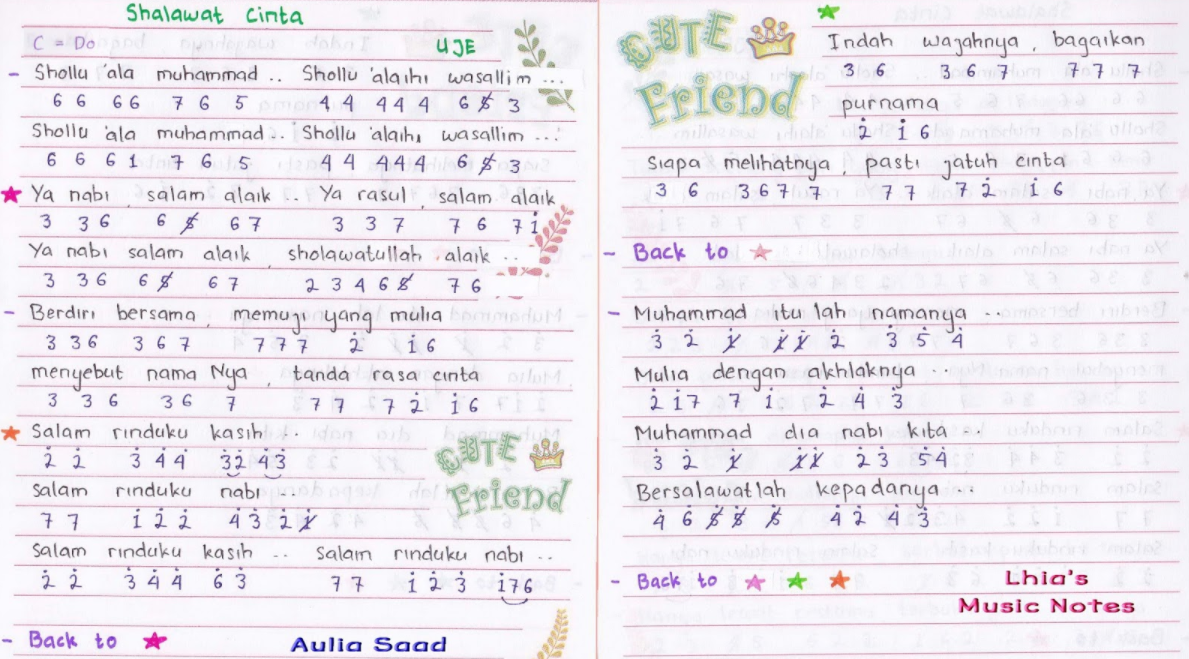 Shalawat Cinta
C = Do
UJE
- Shollu 'ala muhammad .. Shollu 'alaihi wasallim ...
6 6 6 6 7 6 5 4 4 4 4 4 6 5̸ 3
Shollu 'ala muhammad .. Shollu 'alaihi wasallim ...
6 6 6 1 7 6 5 4 4 4 4 4 6 5̸ 3
★ Ya nabi salam alaik .. Ya rasul salam alaik
3 3 6 6 5̸ 6 7 3 3 7 7 6 7 1̇
Ya nabi salam alaik, sholawatullah alaik ..
3 3 6 6 5̸ 6 7 2 3 4 6 5̸ 7 6
- Berdiri bersama, memuji yang mulia
3 3 6 3 6 7 7 7 7 2̇ 1̇ 6
menyebut nama Nya, tanda rasa cinta
3 3 6 3 6 7 7 7 7 2̇ 1̇ 6
★ Salam rinduku kasih ..
2̇ 2̇ 3̇ 4̇ 4̇ 3̇2̇ 4̇3̇
Salam rinduku nabi ...
7 7 1̇ 2̇ 2̇ 4̇ 3̇ 2̇ 1̸̇
Salam rinduku kasih .. Salam rinduku nabi ..
2̇ 2̇ 3̇ 4̇ 4̇ 6̇ 3̇ 7 7 1̇ 2̇ 3̇ 1̇76
- Back to ★
Aulia Saad
CUTE Friend
CUTE Friend
★
Indah wajahnya, bagaikan
3 6 3 6 7 7 7 7
purnama
2̇ 1̇ 6
Siapa melihatnya, pasti jatuh cinta
3 6 3 6 7 7 7 7 7 2̇ 1̇ 6
- Back to ★
- Muhammad itu lah namanya ..
3̇ 2̇ 1̸̇ 1̸̇ 1̸̇ 2̇ 3̇ 5̇ 4̇
Mulia dengan akhlaknya ..
2̇ 1̇ 7 7 1̇ 2̇ 4̇ 3̇
Muhammad dia nabi kita ..
3̇ 2̇ 1̸̇ 1̸̇ 1̸̇ 2̇ 3̇ 5̇ 4̇
Bersalawatlah kepadanya ...
4̇ 6̇ 5̸̇ 5̸̇ 5̸̇ 4̇ 2̇ 4̇ 3̇
- Back to ★ ★ ★
Lhia's
Music Notes